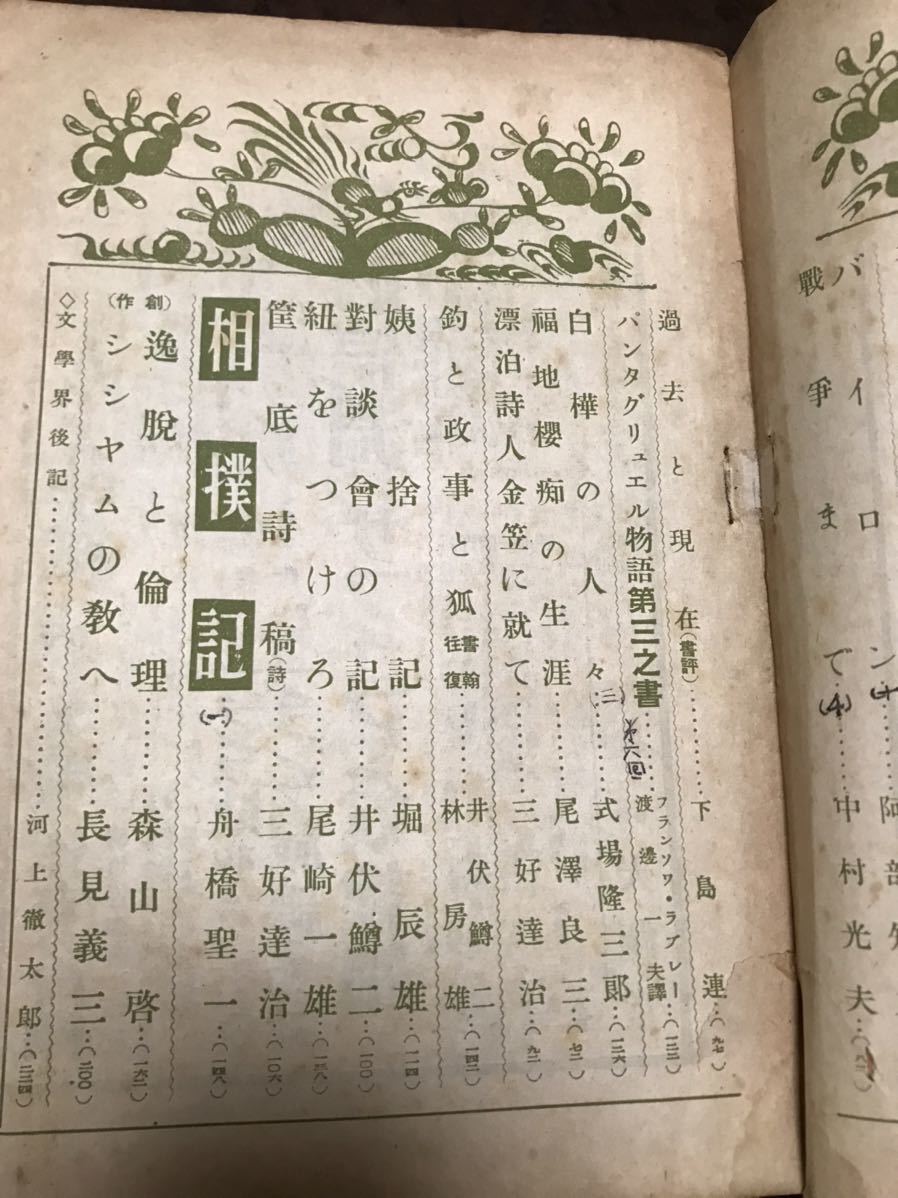 バイロン……阿部知
戰爭まで(4)……中村光夫…
過去と現在(書評)……下島連…(九七)
パンタグリュエル物語第三之書……フランソワ・ラブレー 渡邊一夫譯…(一二二)
第六回
白樺の人々(三)……式場隆三郎…(一二六)
福地櫻痴の生涯……尾澤良三…(七二)
漂泊詩人金笠に就て……三好達治…(九二)
釣と政事と狐 書翰往復 井伏鱒二 林房雄…(一四二)
姨捨記……堀辰雄…(一一四)
對談會の記……井伏鱒二…(一〇〇)
紐をつけろ……尾崎一雄…(一三八)
筐底詩稿(詩)……三好達治…(一〇六)
相撲記(一)……舟橋聖一…(一四八)
(創作)
逸脫と倫理……森山啓…(一六二)
シシヤムの敎へ……長見義三…(二〇〇)
◇文學界後記……河上徹太郎…(二二四)